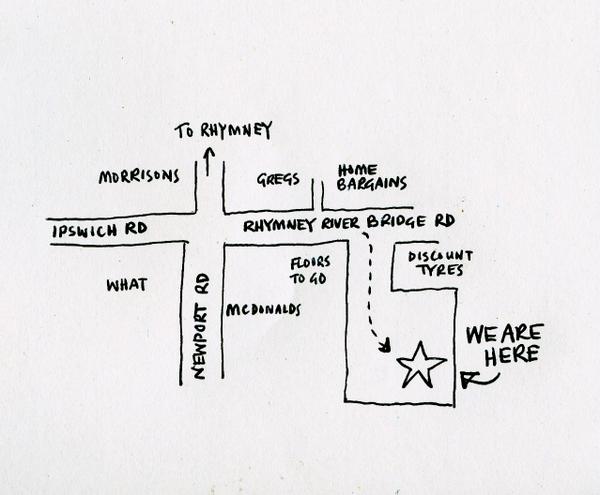 TO RHYMNEY
MORRISONS
GREGS
HOME
BARGAINS
IPSWICH RD
RHYMNEY RIVER BRIDGE RD
WHAT
FLOORS
TO GO
DISCOUNT
TYRES
NEWPORT RD
MCDONALDS
WE ARE
HERE